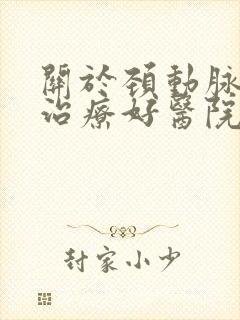 關於頚動脉
治療好醫院
封家小少